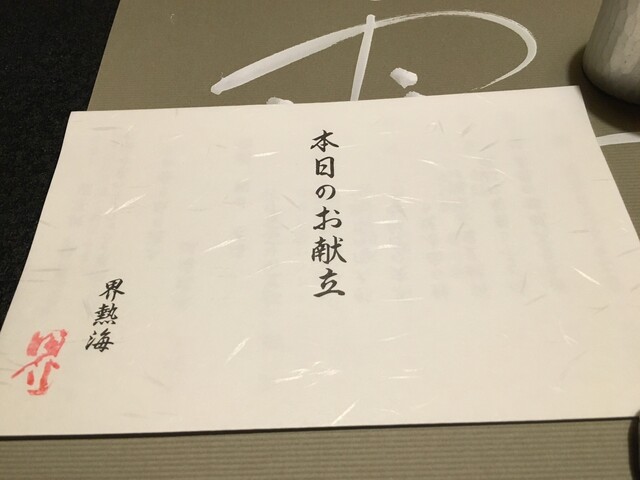 本日のお献立
界熱海
界